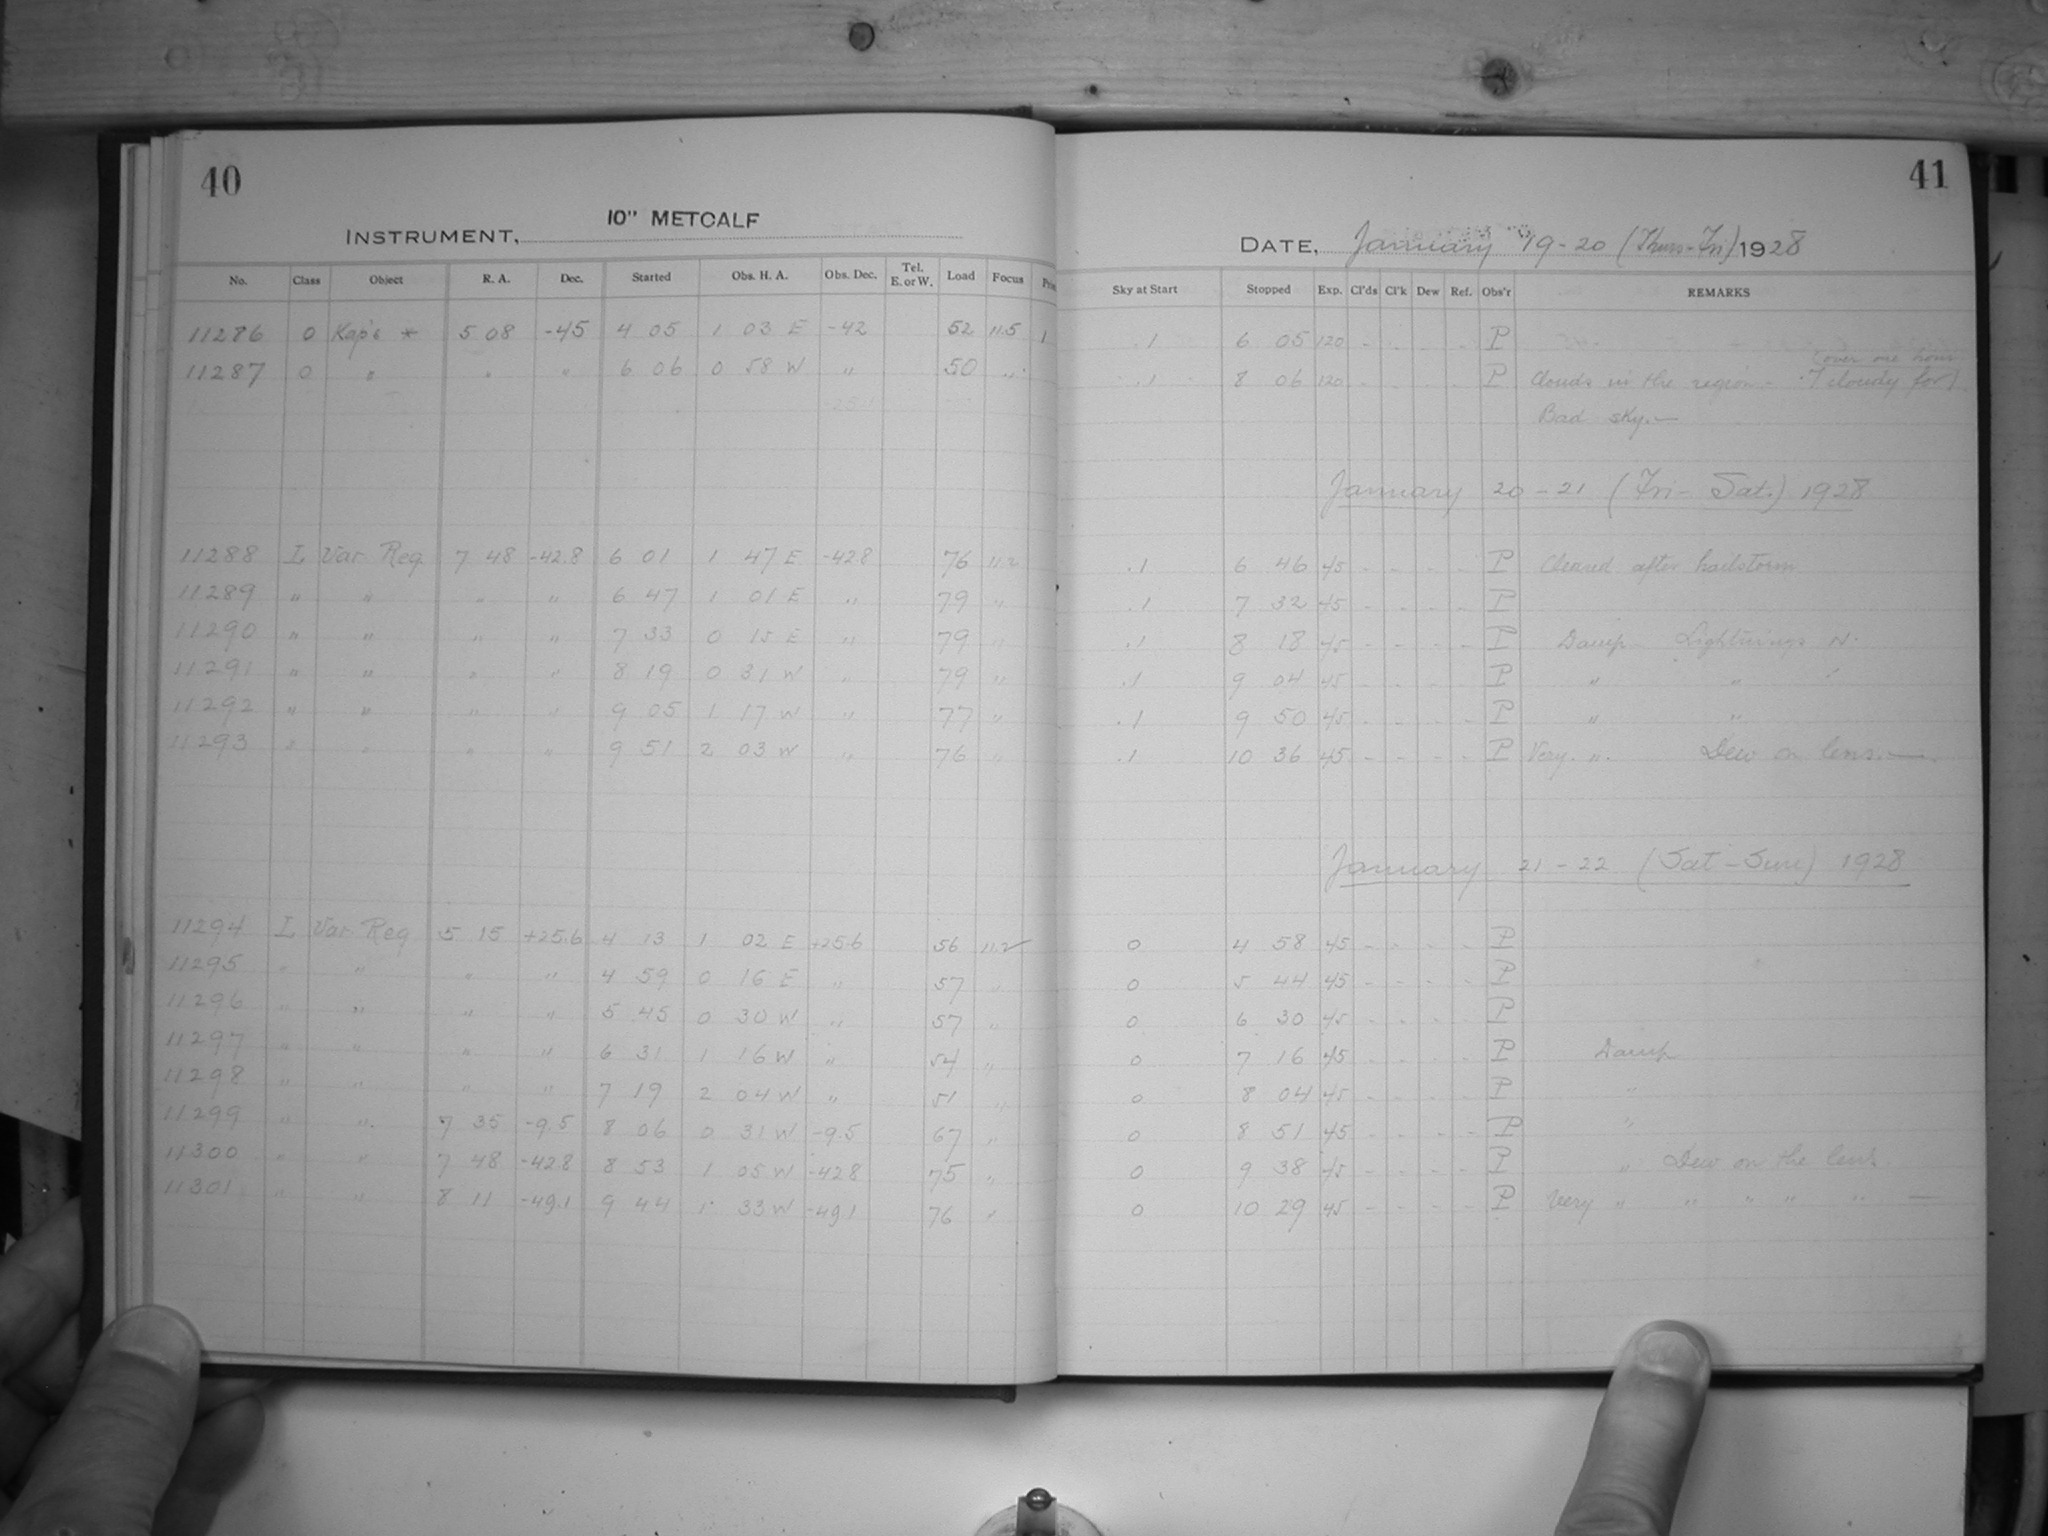 40
INSTRUMENT, 10" METCALF
No. Class Object R. A. Dec. Started Obs. H. A. Obs. Dec. Tel. E. or W. Load Focus
11286 O Kap's * 5 08 -45 4 05 1 03 E -42 52 11.5 1
11287 O " " " 6 06 0 58 W " 50 "
11288 L Var Reg. 7 48 -42.8 6 01 1 47 E -42.8 76 11.2
11289 " " " " 6 47 1 01 E " 79 "
11290 " " " " 7 33 0 15 E " 79 "
11291 " " " " 8 19 0 31 W " 79 "
11292 " " " " 9 05 1 17 W " 77 "
11293 " " " " 9 51 2 03 W " 76 "
11294 L Var Reg 5 15 +25.6 4 13 1 02 E +25.6 56 11.2
11295 " " " " 4 59 0 16 E " 57 "
11296 " " " " 5 45 0 30 W " 57 "
11297 " " " " 6 31 1 16 W " 54 "
11298 " " " " 7 19 2 04 W " 51 "
11299 " " 7 35 -9.5 8 06 0 31 W -9.5 67 "
11300 " " 7 48 -42.8 8 53 1 05 W -42.8 75 "
11301 " " 8 11 -49.1 9 44 1 33 W -49.1 76 "
41
DATE, January 19-20 (Thurs-Fri) 1928
Sky at Start Stopped Exp. Cl'ds Cl'k Dew Ref. Obs'r REMARKS
.1 6 05 120 - - - - P
over one hour
.1 8 06 120 - - - - P Clouds in the region - .7 cloudy for
Bad sky.—
January 20-21 (Fri-Sat.) 1928
.1 6 46 45 - - - - P Cleared after hailstorm
.1 7 32 45 - - - - P
.1 8 18 45 - - - - P Damp - Lightnings N.
.1 9 04 45 - - - - P " " "
.1 9 50 45 - - - - P " "
.1 10 36 45 - - - - P Very " Dew on lens.—
January 21-22 (Sat-Sun) 1928
0 4 58 45 - - - - P
0 5 44 45 - - - - P
0 6 30 45 - - - - P
0 7 16 45 - - - - P Damp
0 8 04 45 - - - - P "
0 8 51 45 - - - - P "
0 9 38 45 - - - - P " Dew on the lens
0 10 29 45 - - - - P Very " " " " " —